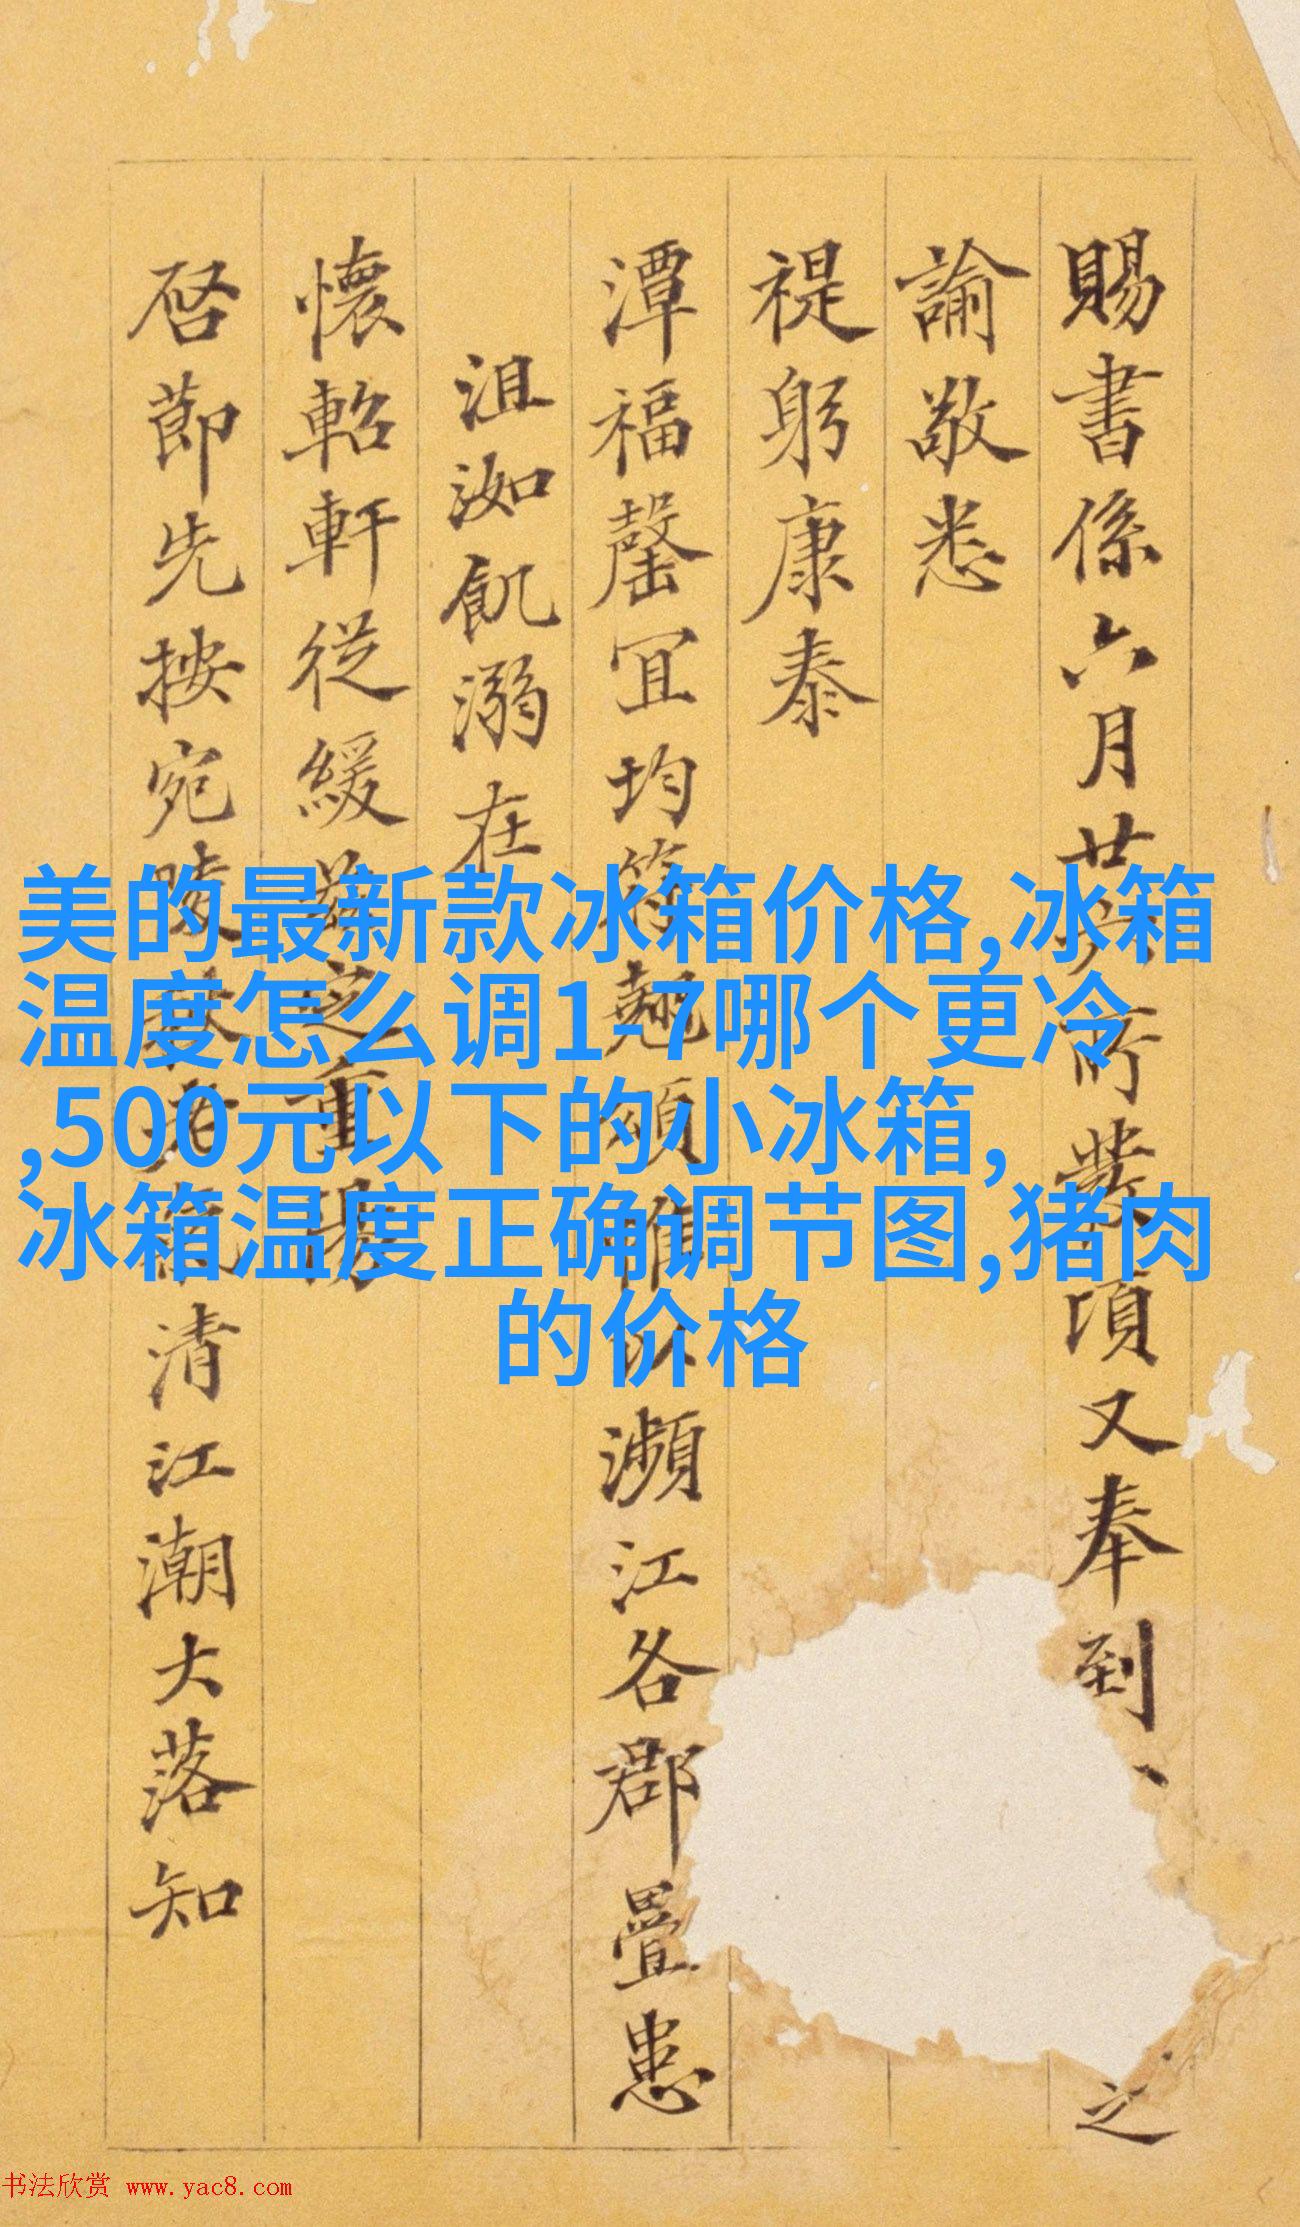 賜書係六月廿六所發項又奉到、
之
諭敬悉
禔躬康泰
潭福罄宜均符翹頌惟以瀕江各郡疊患
沮洳飢溺在
懷軺軒從緩
啓節先按宛陵
清江潮大落知
美的最新款冰箱价格,冰箱
温度怎么调1-7哪个更冷
,500元以下的小冰箱,
冰箱温度正确调节图,猪肉
的价格
书法欣赏 www.yac8.com